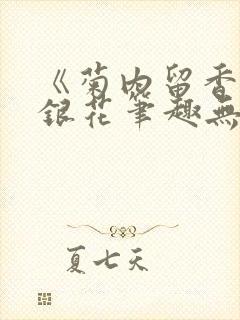 《菊内留香
銀花筆趣無
夏七天